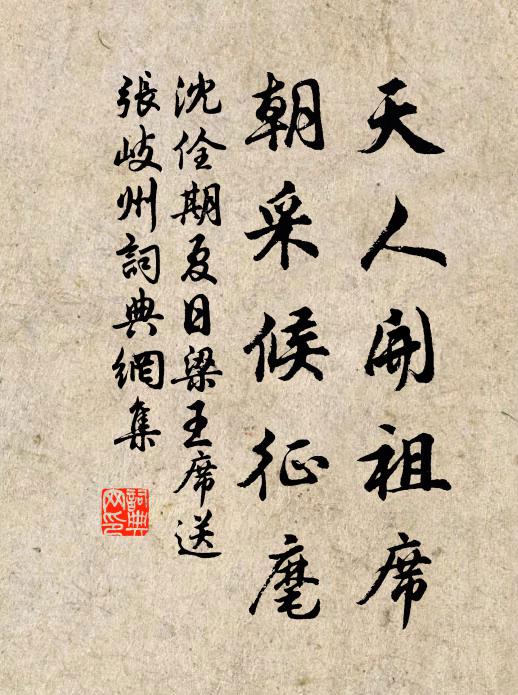 天人開祖席
朝采候征麾
沈佺期夏日梁王席送
張岐州詞典網集
詞典
网印